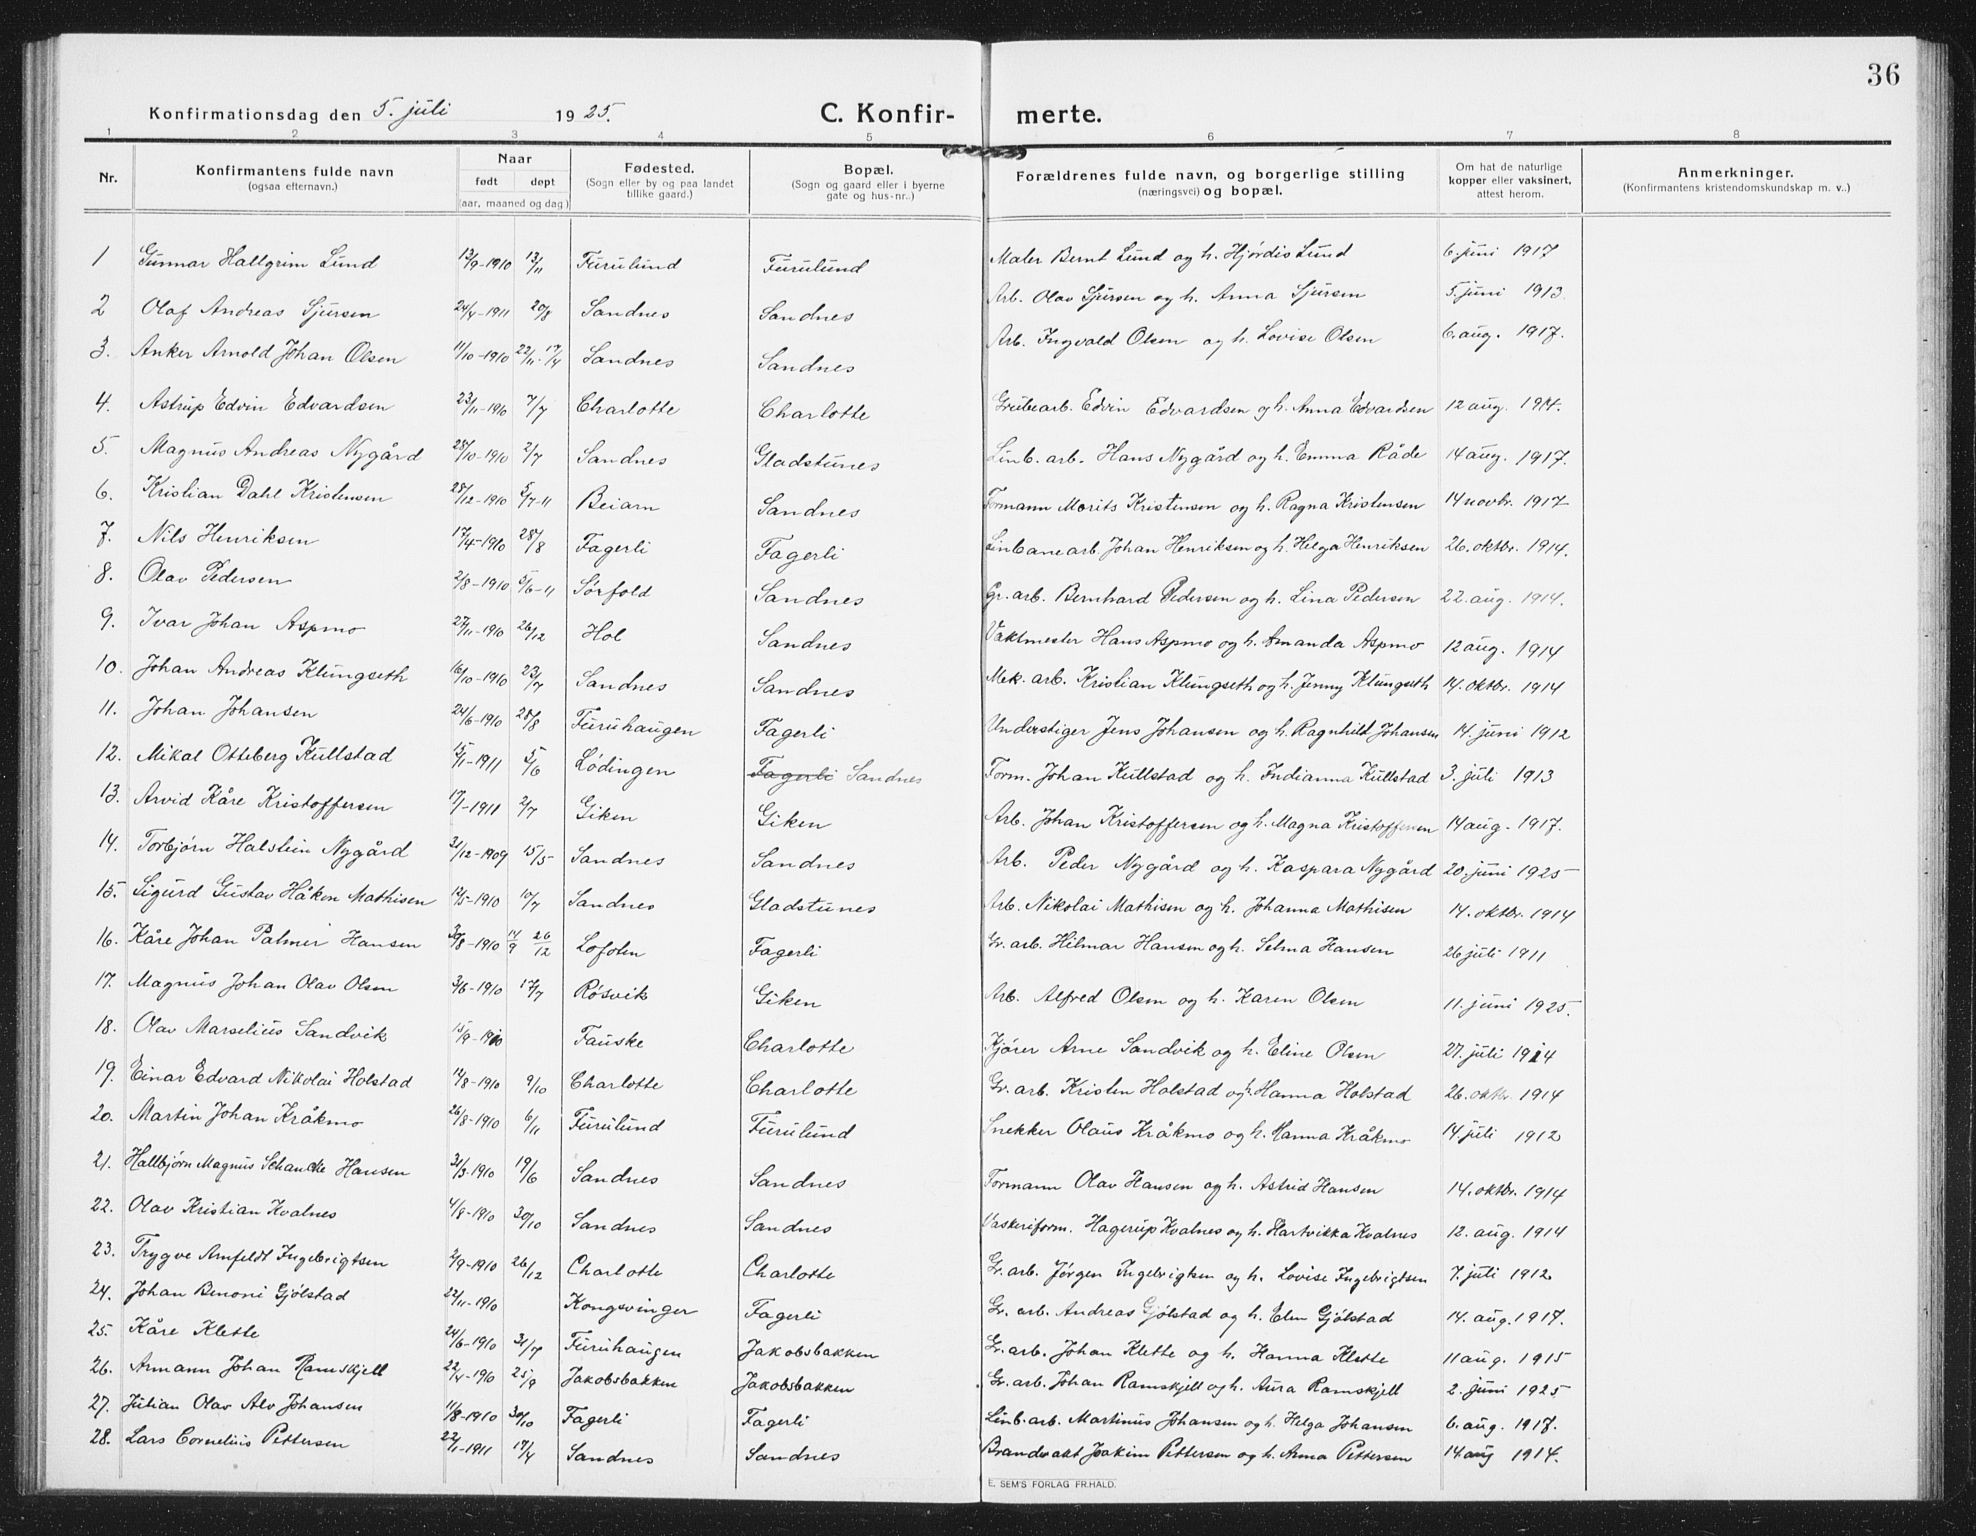 36
Konfirmationsdag den 5. juli 1925. C. Konfir- merte.
1 2 3 4 5 6 7 8
Nr. Konfirmantens fulde navn (ogsaa efternavn.) Naar født døpt (aar, maaned og dag) Fødested. (Sogn eller by og paa landet tillike gaard.) Bopæl. (Sogn og gaard eller i byerne gate og hus-nr..) Forældrenes fulde navn, og borgerlige stilling (næringsvei) og bopæl. Om hat de naturlige kopper eller vaksinert, attest herom. Anmerkninger. (Konfirmantens kristendomskundskap m. v..)
1 Gunnar Hallgrim Lund 13/9-1910 13/11 Furulund Furulund Maler Bernt Lund og h. Hjørdis Lund 6. juni 1917
2 Olaf Andreas Sjursen 24/4-1911 20/8 Sandnes Sandnes Arb. Olav Sjursen og h. Anna Sjursen 5. juni 1913
3. Anker Arnold Johan Olsen 11/10-1910 22/11-17/4 Sandnes Sandnes Arb. Ingvald Olsen og h. Lovise Olsen 6. aug. 1917.
4. Astrup Edvin Edvardsen 23/11-1910 7/7 Charlotte Charlotte Grubearb. Edvin Edvardsen og h. Anna Edvardsen 12 aug. 1914.
5. Magnus Andreas Nygård 28/10-1910 2/7 Sandnes Gladstunes Linb. arb. Hans Nygård og h. Emma Råde 14 aug. 1917.
6. Kristian Dahl Kristensen 28/12-1910 5/7-11 Beiarn Sandnes Formann Morits Kristensen og h. Ragna Kristensen 14 novbr. 1917
7. Nils Henriksen 17/4-1910 28/8 Fagerli Fagerli Linbanearb. Johan Henriksen og h. Helga Henriksen 26. oktbr. 1914.
8. Olav Pedersen 2/8-1910 5/6-11 Sørfold Sandnes Gr. arb. Bernhard Pedersen og h. Lina Pedersen 22. aug. 1914.
9. Ivar Johan Aspmo 27/11-1910 26/12 Hol Sandnes Vaktmester Hans Aspmo og h. Amanda Aspmo 12 aug. 1914
10. Johan Andreas Klungseth 16/10-1910 23/7 Sandnes Sandnes Mek. arb. Kristian Klungseth og h. Jenny Klungseth 14. oktbr. 1914
11. Johan Johansen 24/6-1910 28/8 Furuhaugen Fagerli Understiger Jens Johansen og h. Ragnhild Johansen 14. juni 1912
12. Mikal Otteberg Kullstad 15/1-1911 5/6 Lødingen Fagerli Sandnes Form. Johan Kullstad og h. Indianna Kullstad 3. juli 1913
13. Arvid Kåre Kristoffersen 17/1-1911 2/7 Giken Giken Arb. Johan Kristoffersen og h. Magna Kristoffersen 14 aug. 1917.
14. Torbjørn Halstein Nygård 31/12-1909 15/5 Sandnes Sandnes Arb. Peder Nygård og h. Kaspara Nygård 20. juni 1925
15. Sigurd Gustav Håken Mathisen 12/5-1910 10/7 Sandnes Gladstunes Arb. Nikolai Mathisen og h. Johanna Mathisen 14. oktbr. 1914
16. Kåre Johan Palmer Hansen 30/8-1910 14/9 26/12 Lofoten Fagerli Gr. arb. Hilmar Hansen og h. Selma Hansen 26 juli 1911
17. Magnus Johan Olav Olsen 3/6-1910 17/7 Røsvik Giken Arb. Alfred Olsen og h. Karen Olsen 11. juni 1925.
18. Olav Marselius Sandvik 15/9-1910 Fauske Charlotte Kjører Arne Sandvik og h. Eline Olsen 27. juli 1914
19. Einar Edvard Nikolai Holstad 12/8-1910 9/10 Charlotte Charlotte Gr. arb. Kristen Holstad og h. Hanna Holstad 26. oktbr. 1914
20. Martin Johan Kråkmo 26/8-1910 6/11 Furulund Furulund Snekker Olaus Kråkmo og h. Hanna Kråkmo 14. juli 1912
21. Hallbjørn Magnus Schancke Hansen 31/3-1910 19/6 Sandnes Sandnes Formann Olav Hansen og h. Astrid Hansen 14. oktbr. 1914
22. Olav Kristian Kvalnes 4/8-1910 30/10 Sandnes Sandnes Vaskeriform. Hagerup Kvalnes og h. Hartvikka Kvalnes 12. aug. 1914
23. Trygve Arnfeldt Ingebrigtsen 2/9-1910 26/12 Charlotte Charlotte Gr. arb. Jørgen Ingebrigtsen og h. Lovise Ingebrigtsen 7. juli 1912
24. Johan Benoni Gjølstad 22/11-1910 Kongsvinger Fagerli Gr. arb. Andreas Gjølstad og h. Elen Gjølstad 14. aug. 1917.
25. Kåre Klette 24/6-1910 31/7 Furuhaugen Jakobsbakken Gr. arb. Johan Klette og h. Hanna Klette 11 aug. 1915
26. Armann Johan Ramskjell 22/4-1910 25/9 Jakobsbakken Jakobsbakken Gr. arb. Johan Ramskjell og h. Aura Ramskjell 2. juni 1925
27. Julian Olav Alv Johansen 11/8-1910 30/10 Fagerli Fagerli Linb. arb. Martinus Johansen og h. Helga Johansen 6. aug. 1917.
28. Lars Cornelius Pettersen 22/1-1911 17/4 Sandnes Sandnes Brandvakt Joakim Pettersen og h. Anna Pettersen 14 aug 1914.
E. SEM'S FORLAG FR.HALD.